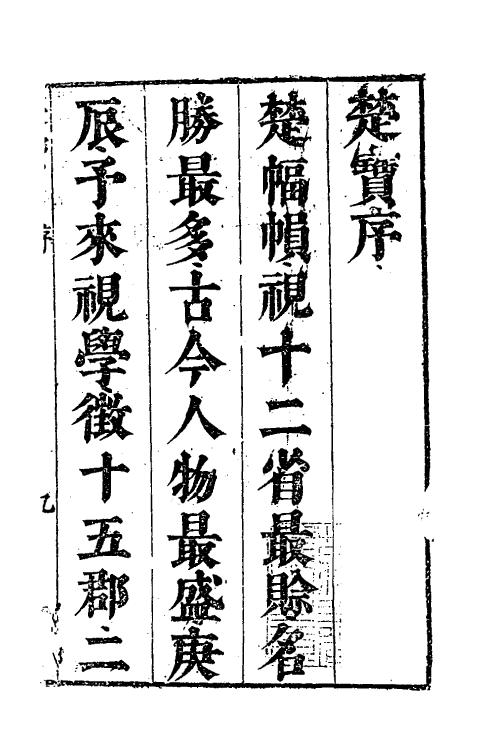 楚寶序
楚幅幀視十二省最賒名
勝最多古今人物最盛庚
辰予來視學徵十五郡二
序